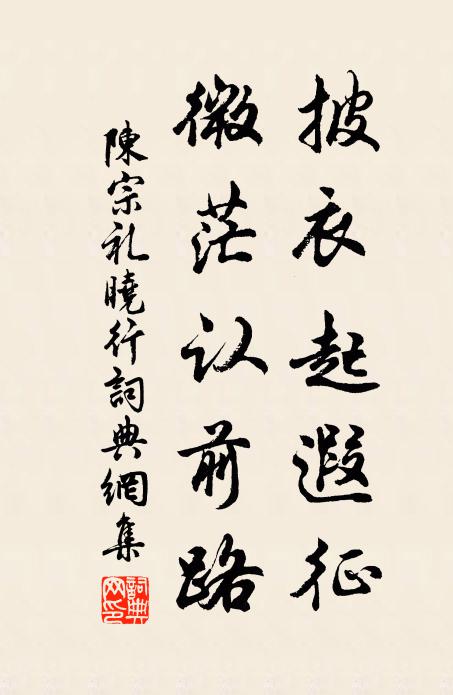 披衣起遐征
微茫认前路
陳宗礼曉行詞典網集
詞典网印